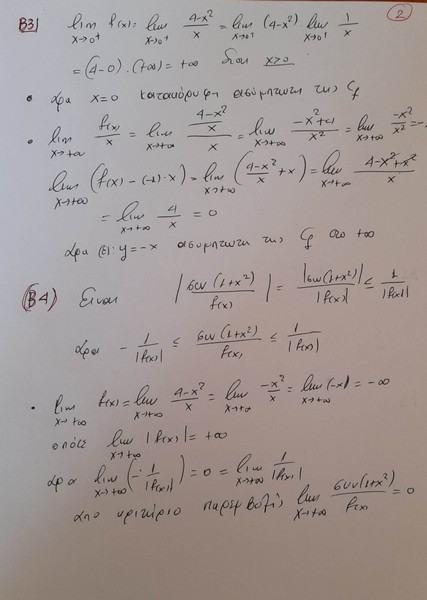 2
B3) lim x→0⁺ f(x) = lim x→0⁺ (4-x²)/x = lim x→0⁺ (4-x²) lim x→0⁺ 1/x
= (4-0)·(+∞) = +∞ διότι x>0
• Άρα x=0 κατακόρυφη ασύμπτωτη της Cf
• lim x→+∞ f(x)/x = lim x→+∞ ((4-x²)/x)/x = lim x→+∞ (-x²+4)/x² = lim x→+∞ -x²/x² = -1
lim x→+∞ (f(x)-(-1)·x) = lim x→+∞ ((4-x²)/x + x) = lim x→+∞ (4-x²+x²)/x
= lim x→+∞ 4/x = 0
Άρα (ε): y=-x ασυμπτωτη της Cf στο +∞
B4) Είναι |συν(1+x²)/f(x)| = |συν(1+x²)|/|f(x)| ≤ 1/|f(x)|
Άρα -1/|f(x)| ≤ συν(1+x²)/f(x) ≤ 1/|f(x)|
• lim x→+∞ f(x) = lim x→+∞ (4-x²)/x = lim x→+∞ -x²/x = lim x→+∞ (-x) = -∞
οπότε lim x→+∞ |f(x)| = +∞
άρα lim x→+∞ (-1/|f(x)|) = 0 = lim x→+∞ 1/|f(x)|
απο κριτήριο παρεμβολής lim x→+∞ συν(1+x²)/f(x) = 0